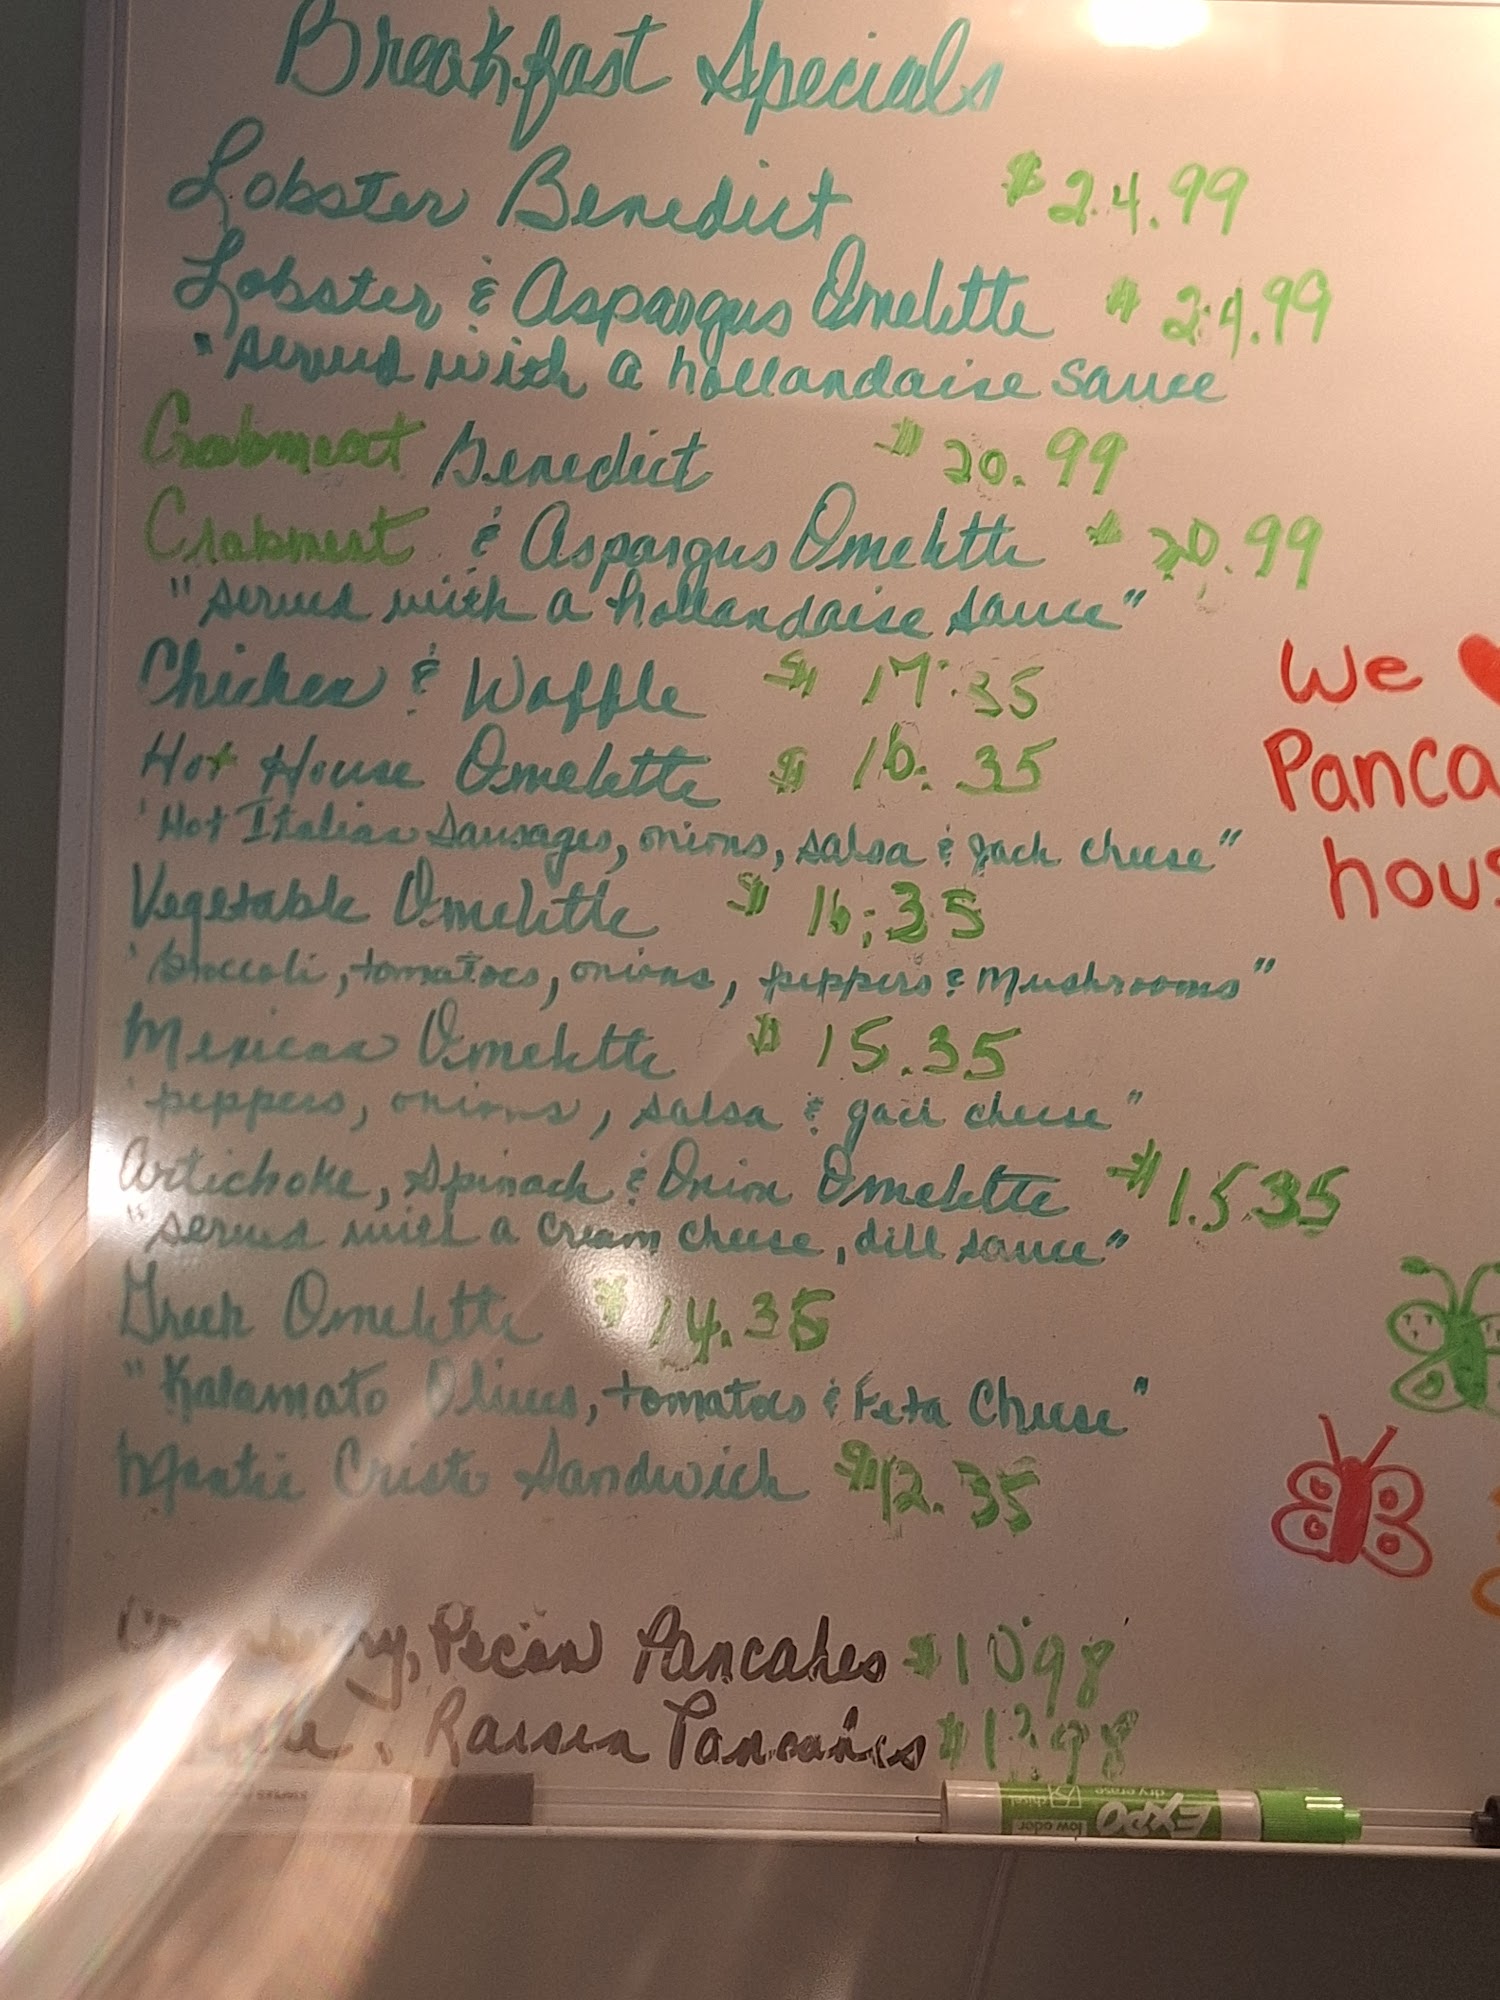 Breakfast Specials
Lobster Benedict $24.99
Lobster & Aspargus Omelette $24.99
"served with a hollandaise sauce
Crabmeat Benedict $20.99
Crabmeat & Aspargus Omelette $20.99
"served with a hollandaise sauce"
Chicken & Waffle $17.35
Hot House Omelette $16.35
'Hot Italian Sausages, onions, salsa & jack cheese"
Vegetable Omelette $16.35
'broccoli, tomatoes, onions, peppers & mushrooms"
Mexican Omelette $15.35
'peppers, onions, salsa & jack cheese"
Artichoke, Spinach & Onion Omelette $15.35
"served with a cream cheese, dill sauce"
Greek Omelette $14.35
"Kalamato Olives, tomatoes & Feta Cheese"
Monte Cristo Sandwich $12.35
Pecan Pancakes $10.98
Raisin Pancakes
We ♥
Panca
hous
EXPO
dry erase
low odor
chisel